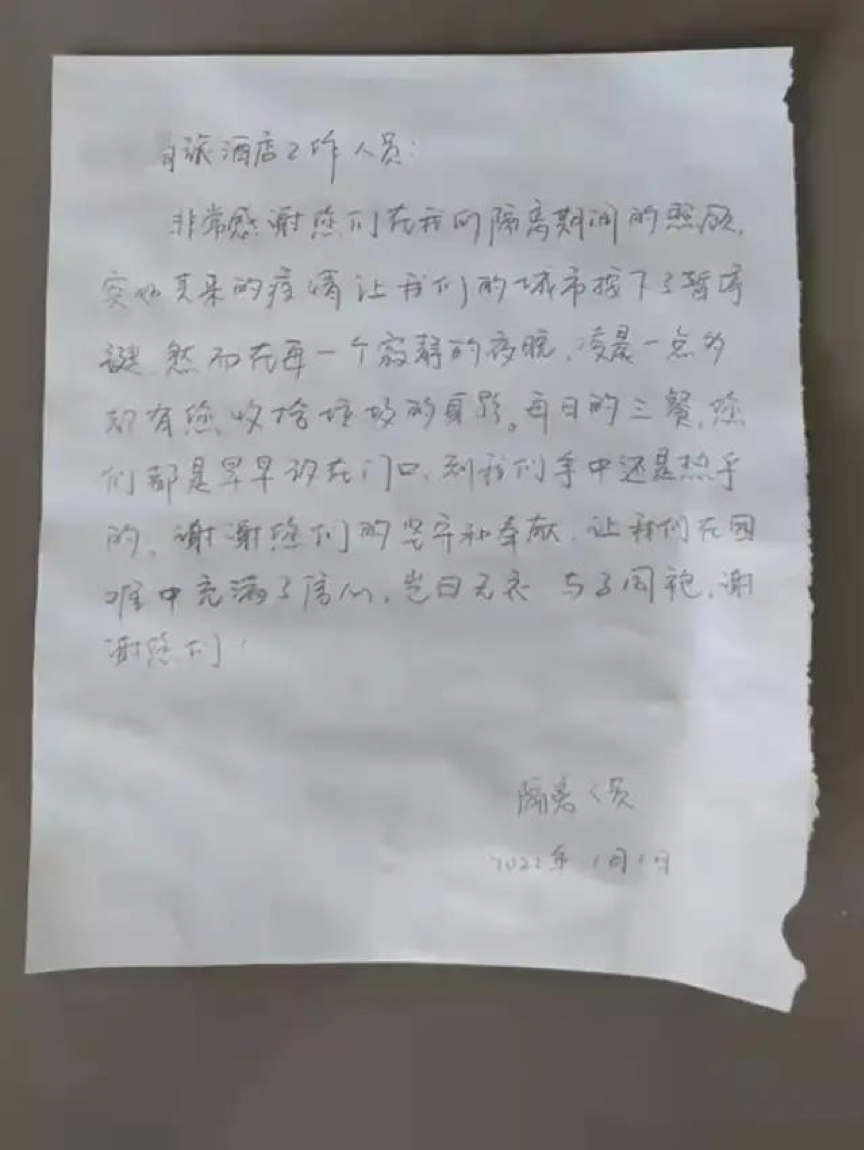 派酒店工作人员:
非常感谢您们在我们隔离期间的照顾,
突如其来的疫情让我们的城市按下了暂停
键 然而在每一个寂静的夜晚,凌晨一点多
却有您收拾垃圾的身影。每日的三餐,您
们都是早早放在门口,到我们手中还是热乎
的,谢谢您们的坚守和奉献,让我们在困
难中充满了信心,岂曰无衣 与子同袍,谢
谢您们!
隔离人员
2022年1月1日